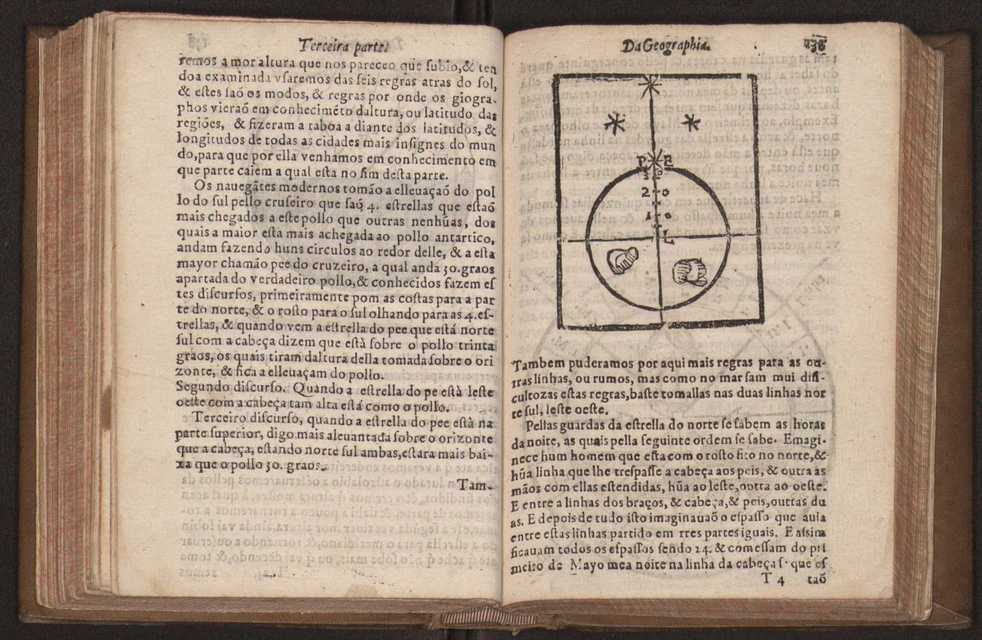 Terceira parte.
remos a mor altura que nos pareceo que subio, & ten
doa examinada vsaremos das seis regras atras do sol,
& estes saõ os modos, & regras por onde os giogra-
phos vieraõ em conhecimẽto daltura, ou latitudo das
regiões, & fizeram a taboa a diante dos latitudos, &
longitudos de todas as cidades mais insignes do mun
do, para que por ella venhamos em conhecimento em
que parte caiem a qual esta no fim desta parte.
Os nauegãtes modernos tomão a elleuaçaõ do pol
lo do sul pello cruseiro que saõ 4. estrellas que estaõ
mais chegados a este pollo que outras nenhũas, dos
quais a maior esta mais achegada ao pollo antartico,
andam fazendo huns circulos ao redor delle, & a esta
mayor chamão pee do cruzeiro, a qual anda 30. graos
apartada do verdadeiro pollo, & conhecidos fazem es
tes discursos, primeiramente pom as costas para a par
te do norte, & o rosto para o sul olhando para as 4. es-
trellas, & quando vem a estrella do pee que está norte
sul com a cabeça dizem que està sobre o pollo trinta
graos, os quais tiram daltura della tomada sobre o ori
zonte, & fica a elleuaçam do pollo.
Segundo discurso. Quando a estrella do pe està leste
oeste com a cabeça tam alta està como o pollo.
Terceiro discurso, quando a estrella do pee està na
parte superior, digo mais aleuantada sobre o orizonte
que a cabeça, estando norte sul ambas, estara mais bai-
xa que o pollo 30. graos.
Tam-
Da Geographia.
P
2 0
1 0
L
Tambem puderamos por aqui mais regras para as ou-
tras linhas, ou rumos, mas como no mar sam mui diffi-
cultozas estas regras, baste tomallas nas duas linhas nor
te sul, leste oeste.
Pellas guardas da estrella do norte se sabem as horas
da noite, as quais pella seguinte ordem se sabe. Emagi-
nece hum homem que esta com o rosto fito no norte, &
hũa linha que lhe trespasse a cabeça aos peis, & outra as
mãos com ellas estendidas, hũa ao leste, outra ao oeste.
E entre a linhas dos braços, & cabeça, & peis, outras du
as. E depois de tudo isto imaginauaõ o espasso que auia
entre estas linhas partido em tres partes iguais. E assim
ficauam todos os espassos sendo 24. & comessam do pri
meiro de Mayo mea noite na linha da cabeça que es
T 4 taõ